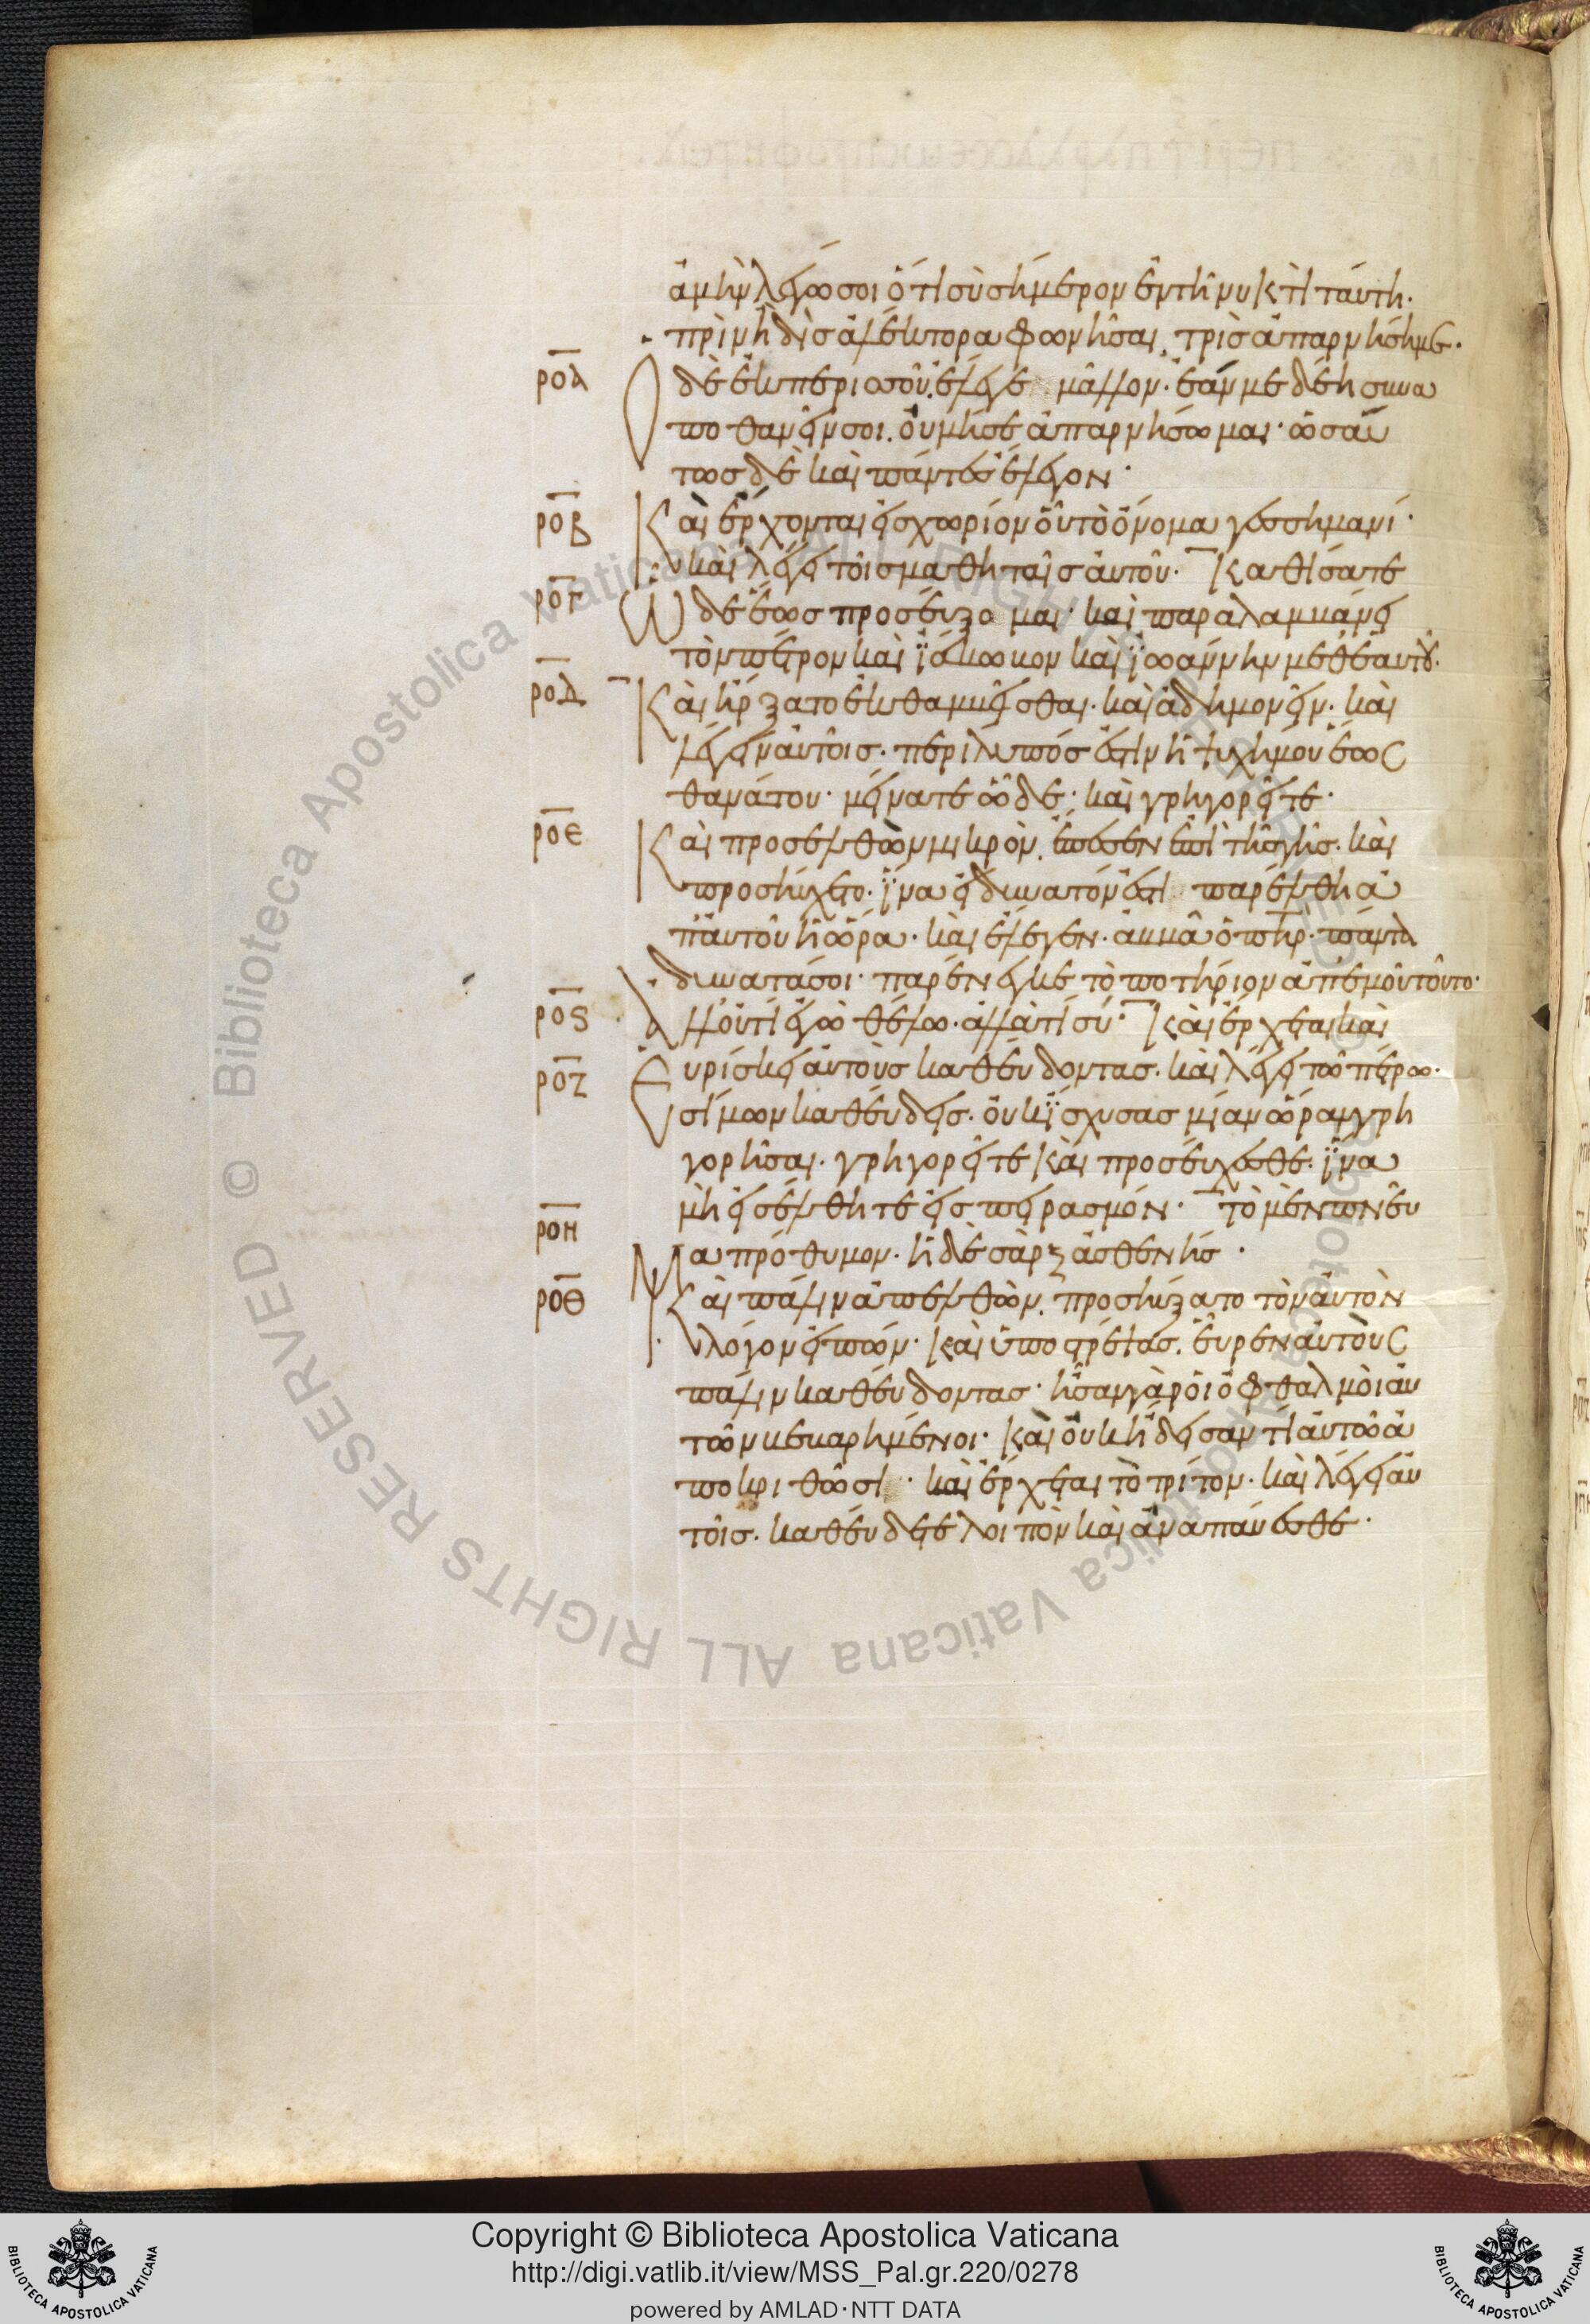 ἀμὴν λέγω σοι ὅτι σὺ σήμερον ἐν τῆ νυκτὶ ταύτη·
πρὶν ἢ δὶσ ἀλέκτορα φωνῆσαι, τρὶσ ἀπαρνήση με·
ροα Ὁ δὲ ἐκπερισσοῦ ἔλεγε μᾶλλον· ἐάν με δέη συνα
ποθανεῖν σοι. οὐ μή σε ἀπαρνήσωμαι· ὡσαύ
τωσ δὲ καὶ πάντεσ ἔλεγον·
ροβ Καὶ ἔρχονται εἰσ χωρίον οὗ τὸ ὄνομα γεσσημανί·
καὶ λέγει τοῖσ μαθηταῖσ αὐτοῦ· Καθίσατε
ρογ ὧδε ἕωσ προσεύξομαι· καὶ παραλαμβάνει
τὸν πέτρον καὶ ϊάκωβον καὶ ϊωάννην μεθ' ἑαυτοῦ·
ροδ Καὶ ἤρξατο ἐκθαμβεῖσθαι· καὶ ἀδημονεῖν· καὶ
λέγειν αὐτοῖσ· περίλυπόσ ἐστιν ἡ ψυχή μου ἕωσ
θανάτου· μείνατε ὧδε· καὶ γρηγορεῖτε·
ροε Καὶ προσελθὼν μικρὸν, ἔπεσεν ἐπὶ τῆσ γῆσ· καὶ
προσηύχετο· ϊνα εἰ δυνατόν ἐστι παρέλθη ἀ
π' αὐτοῦ ἡ ὥρα· καὶ ἔλεγεν· ἀββᾶ ὁ πηρ· πάντα
δυνατά σοι· παρένεγκε τὸ ποτήριον ἀπ' ἐμοῦ τοῦτο·
ροϛ ἀλλ' οὐ τί ἐγὼ θέλω· ἀλλὰ τί σύ· Καὶ ἔρχεται καὶ
ροζ Εὑρίσκει αὐτοὺσ καθεύδοντασ· καὶ λέγει τῶ πέτρω·
σίμων καθεύδεισ· οὐκ ϊσχυσασ μίαν ὥραν γρη
γορῆσαι· γρηγορεῖτε καὶ προσεύχεσθε· ϊνα
μὴ εἰσέλθητε εἰσ πειρασμόν· Τὸ μὲν πνεῦ
ροη Μα πρόθυμον· ἡ δὲ σὰρξ ἀσθενήσ·
ροθ Καὶ πάλιν ἀπελθὼν, προσηύξατο τὸν αὐτὸν
λόγον εἰπών· Καὶ ὑποστρέψασ, εὗρεν αὐτοὺσ
πάλιν καθεύδοντασ· ἦσαν γὰρ οἱ ὀφθαλμοὶ αὐ
τῶν βεβαρημένοι· Καὶ οὐκ ἤδεισαν τί αὐτῶ ἀ
ποκριθῶσι· καὶ ἔρχεται τὸ τρίτον· καὶ λέγει αὐ
τοῖσ· καθεύδετε λοιπὸν καὶ ἀναπαύεσθε·
Copyright © Biblioteca Apostolica Vaticana
http://digi.vatlib.it/view/MSS_Pal.gr.220/0278
powered by AMLAD·NTT DATA